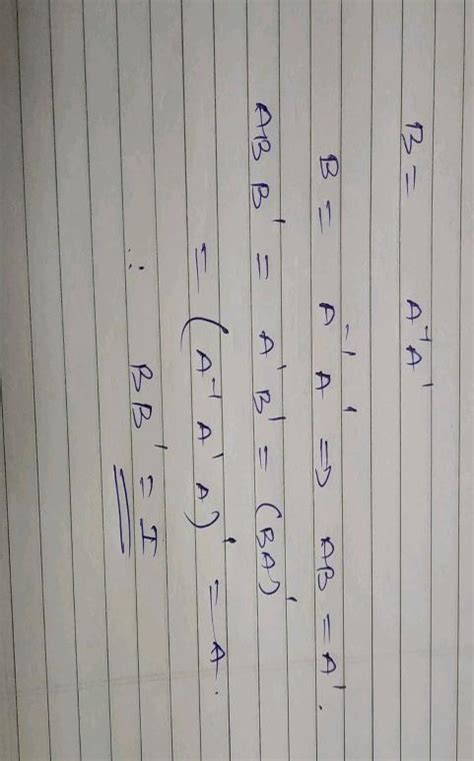 B = A⁻¹A'
B = A⁻¹A' ⇒ AB = A'.
ABB' = A'B' = (BA)'
= (A⁻¹A'A)' = A.
∴ BB' = I